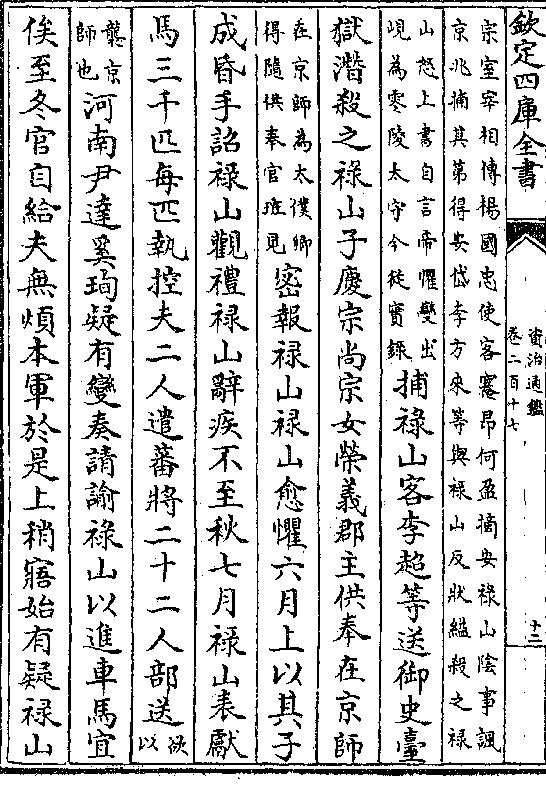 欽定四庫全書
資治通鑑
卷二百十七
十二
宗室宰相傳楊國忠使客蹇昂何盈摘安祿山陰事諷
京兆捕其第得安岱李方來等與祿山反狀縊殺之祿
山怒上書自言帝懼變出
峴為零陵太守今從實錄
捕祿山客李超等送御史臺
獄潛殺之祿山子慶宗尚宗女榮義郡主供奉在京師
在京師為太僕卿
得隨供奉官班見
密報祿山祿山愈懼六月上以其子
成昏手詔祿山觀禮祿山辭疾不至秋七月祿山表獻
馬三千匹每匹執控夫二人遣蕃將二十二人部送
欲
以
襲京
師也
河南尹達奚珣疑有變奏請諭祿山以進車馬宜
俟至冬官自給夫無煩本軍於是上稍寤始有疑祿山